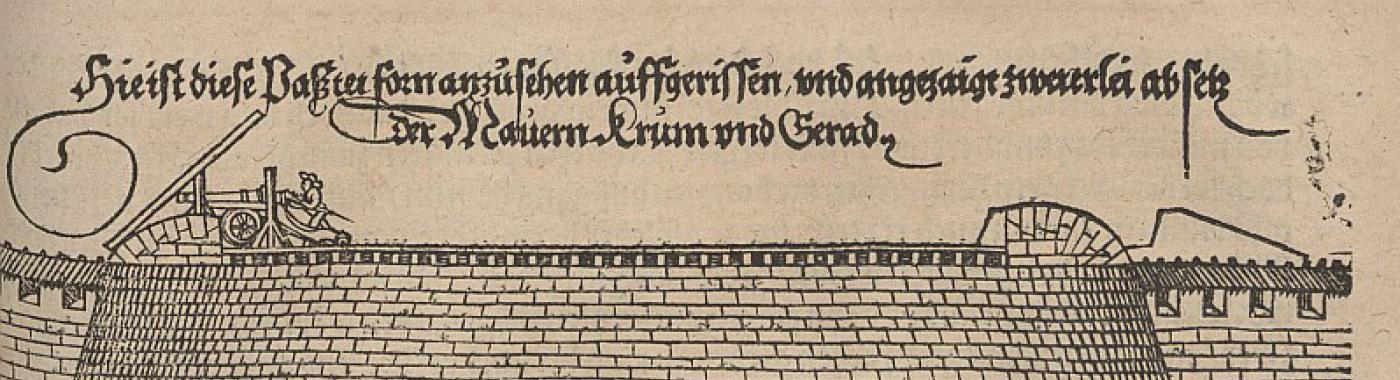 Hie ist diese Pasztei forn anzůsehen aůffgerissen / vnd angezaigt zweierlei absetz
der Maůern Krum vnd Gerad